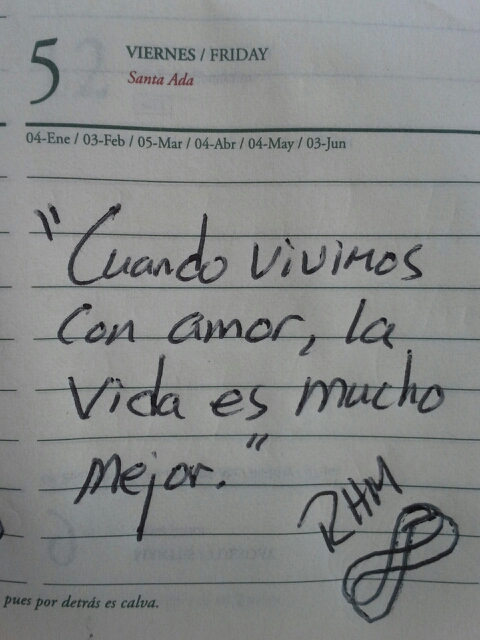 5
VIERNES / FRIDAY
Santa Ada
04-Ene / 03-Feb / 05-Mar / 04-Abr / 04-May / 03-Jun
"Cuando vivimos
con amor, la
vida es mucho
mejor."
RHM
pues por detrás es calva.